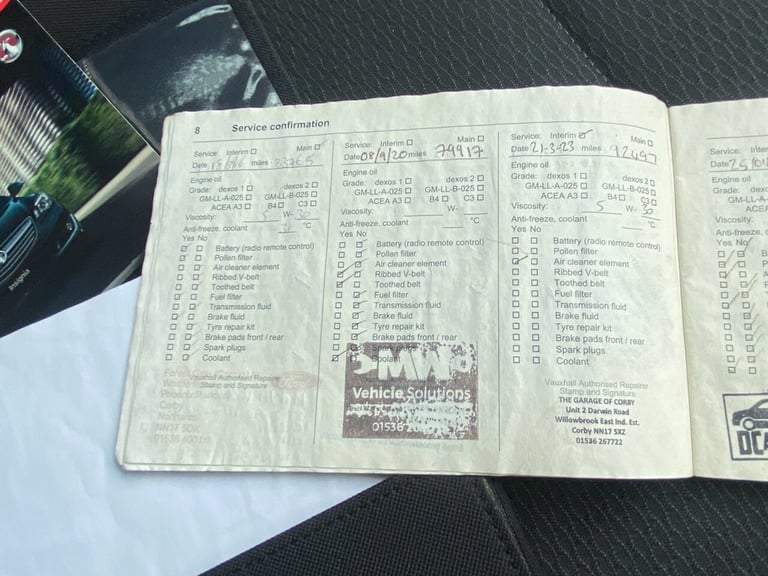 8 Service confirmation
Service: Interim Main
Date miles
Engine oil
Grade: dexos 1 dexos 2
GM-LL-A-025 GM-LL-B-025
ACEA A3 B4 C3
Viscosity: 5 W-30
Anti-freeze, coolant °C
Yes No
Battery (radio remote control)
Pollen filter
Air cleaner element
Ribbed V-belt
Toothed belt
Fuel filter
Transmission fluid
Brake fluid
Tyre repair kit
Brake pads front / rear
Spark plugs
Coolant
Vauxhall Authorised Repairer
Stamp and Signature
NN17 5DX
Service: Interim Main
Date 08/9/20 miles 79917
Engine oil
Grade: dexos 1 dexos 2
GM-LL-A-025 GM-LL-B-025
ACEA A3 B4 C3
Viscosity: W-
Anti-freeze, coolant °C
Yes No
Battery (radio remote control)
Pollen filter
Air cleaner element
Ribbed V-belt
Toothed belt
Fuel filter
Transmission fluid
Brake fluid
Tyre repair kit
Brake pads front / rear
Spark plugs
Coolant
Vehicle Solutions
01536
Service: Interim Main
Date 21-3-23 miles 92497
Engine oil
Grade: dexos 1 dexos 2
GM-LL-A-025 GM-LL-B-025
ACEA A3 B4 C3
Viscosity: 5 W-30
Anti-freeze, coolant °C
Yes No
Battery (radio remote control)
Pollen filter
Air cleaner element
Ribbed V-belt
Toothed belt
Fuel filter
Transmission fluid
Brake fluid
Tyre repair kit
Brake pads front / rear
Spark plugs
Coolant
Vauxhall Authorised Repairer
Stamp and Signature
THE GARAGE OF CORBY
Unit 2 Darwin Road
Willowbrook East Ind. Est.
Corby NN17 5XZ
01536 267722
Service:
Date
Engine oil
Grade:
GM-LL-A
ACE
Viscosity:
Anti-freeze,
Yes No
Insignia